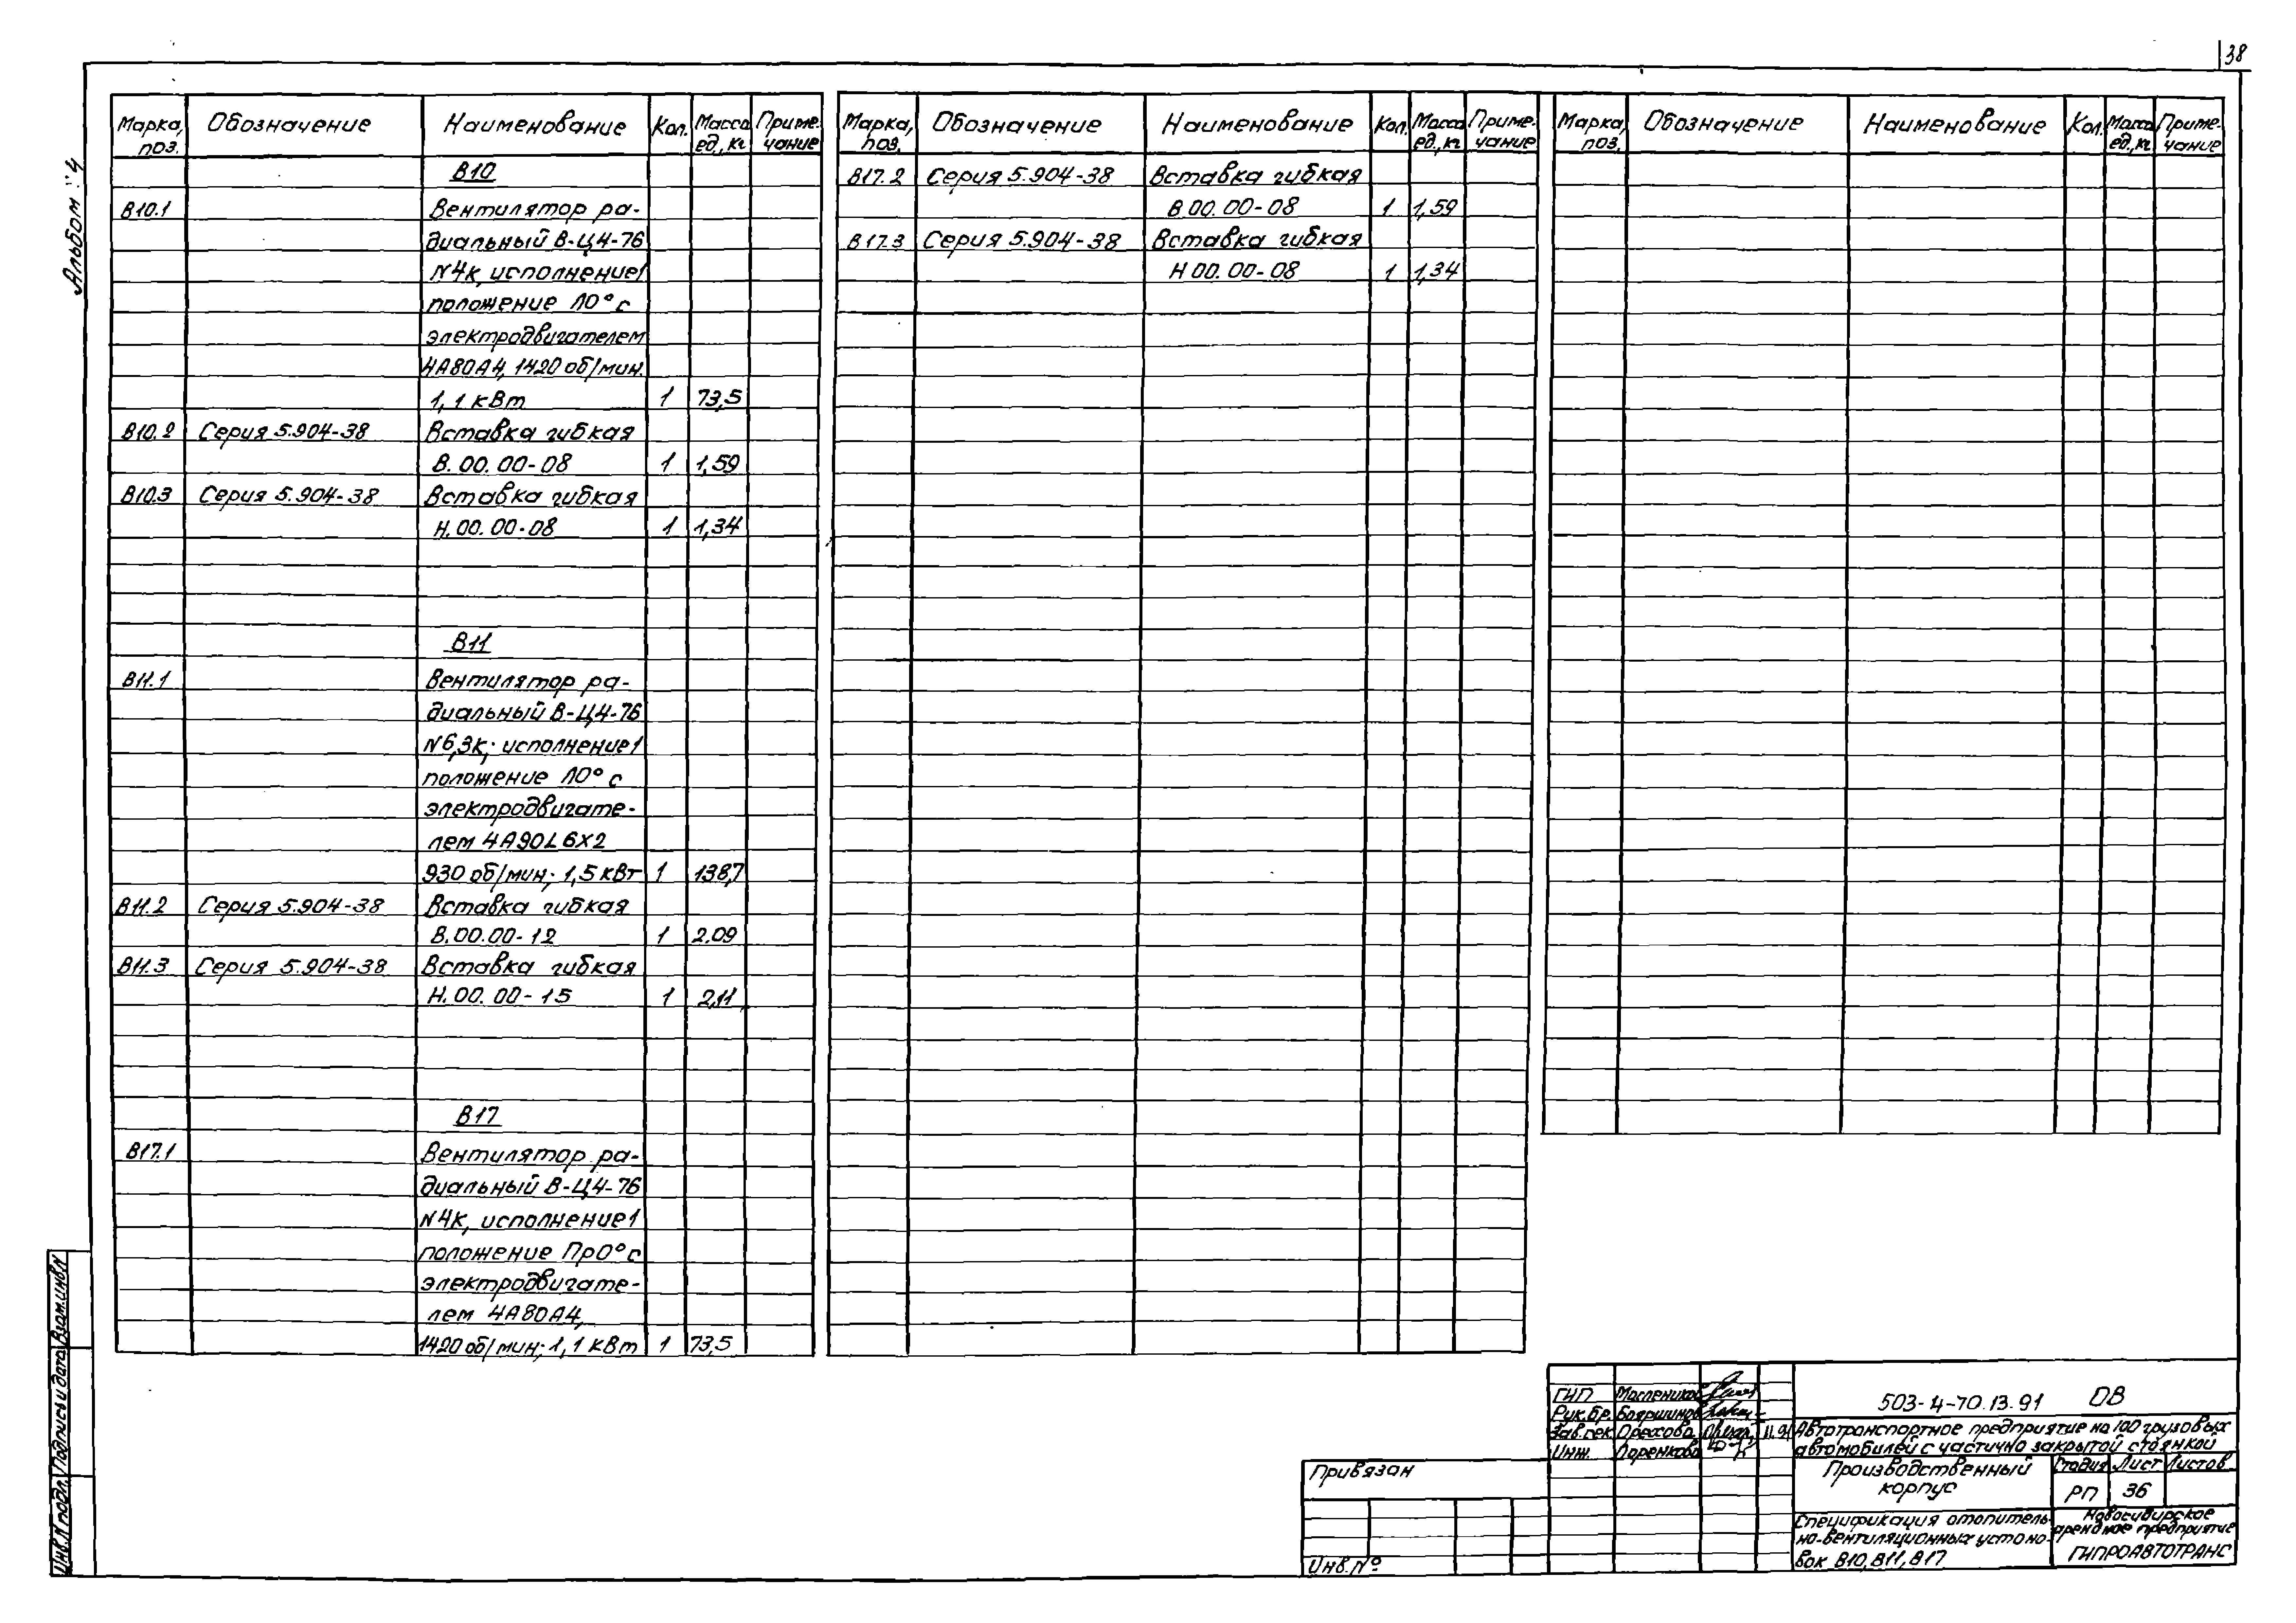 38
Альбом 4
Марка, поз. Обозначение Наименование Кол. Масса ед., кг Приме-чание
В10
В10.1 Вентилятор ра-
диальный В-Ц4-76
N4к, исполнение 1
положение Л0° с
электродвигателем
4А80А4, 1420 об/мин.
1,1 кВт 1 73,5
В10.2 Серия 5.904-38 Вставка гибкая
В.00.00-08 1 1,59
В10.3 Серия 5.904-38 Вставка гибкая
Н.00.00-08 1 1,34
В11
В11.1 Вентилятор ра-
диальный В-Ц4-76
N6,3к; исполнение 1
положение Л0° с
электродвигате-
лем 4А90L6X2
930 об/мин; 1,5 кВт 1 138,7
В11.2 Серия 5.904-38 Вставка гибкая
В.00.00-12 1 2.09
В11.3 Серия 5.904-38 Вставка гибкая
Н.00.00-15 1 2,11
В17
В17.1 Вентилятор ра-
диальный В-Ц4-76
N4к, исполнение 1
положение Пр0° с
электродвигате-
лем 4А80А4,
1420 об/мин; 1,1 кВт 1 73,5
Марка, поз. Обозначение Наименование Кол. Масса ед., кг Приме-чание
В17.2 Серия 5.904-38 Вставка гибкая
В 00.00-08 1 1,59
В17.3 Серия 5.904-38 Вставка гибкая
Н 00.00-08 1 1,34
Марка, поз. Обозначение Наименование Кол. Масса ед., кг Приме-чание
Инв.N подл. Подпись и дата Взам.инв.N
Привязан
Инв.N°
ГИП Маслеников
Рук.бр. Бояршинов
Зав.сек. Орехова 11.91
Инж. Лоренкова
503-4-70.13.91 ОВ
Автотранспортное предприятие на 100 грузовых
автомобилей с частично закрытой стоянкой
Производственный
корпус
Стадия Лист Листов
РП 36
Спецификация отопитель-
но-вентиляционных устано-
вок В10, В11, В17
Новосибирское
арендное предприятие
ГИПРОАВТОТРАНС